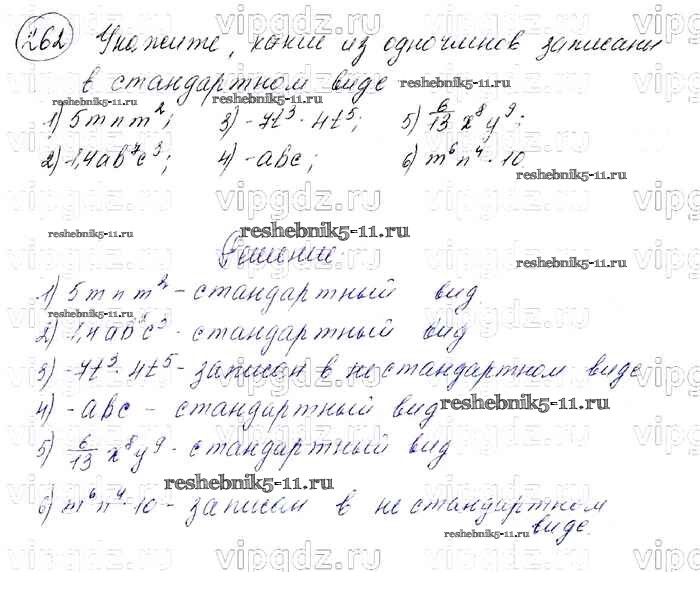 262 Укажите, какие из одночленов записаны
в стандартном виде
reshebnik5-11.ru
1) 5mnm²; 3) -7t³·4t⁵; 5) 6/13 x⁸y⁹;
2) -1,4ab⁷c³; 4) -abc; 6) m⁶n⁴·10
reshebnik5-11.ru
Решение:
1) 5mnm² - стандартный вид
2) -1,4ab⁷c³ - стандартный вид
3) -7t³·4t⁵ - записан в не стандартном виде
4) -abc - стандартный вид
reshebnik5-11.ru
5) 6/13 x⁸y⁹ - стандартный вид
reshebnik5-11.ru
6) m⁶n⁴·10 - записан в не стандартном
виде.
reshebnik5-11.ru
vipgdz.ru